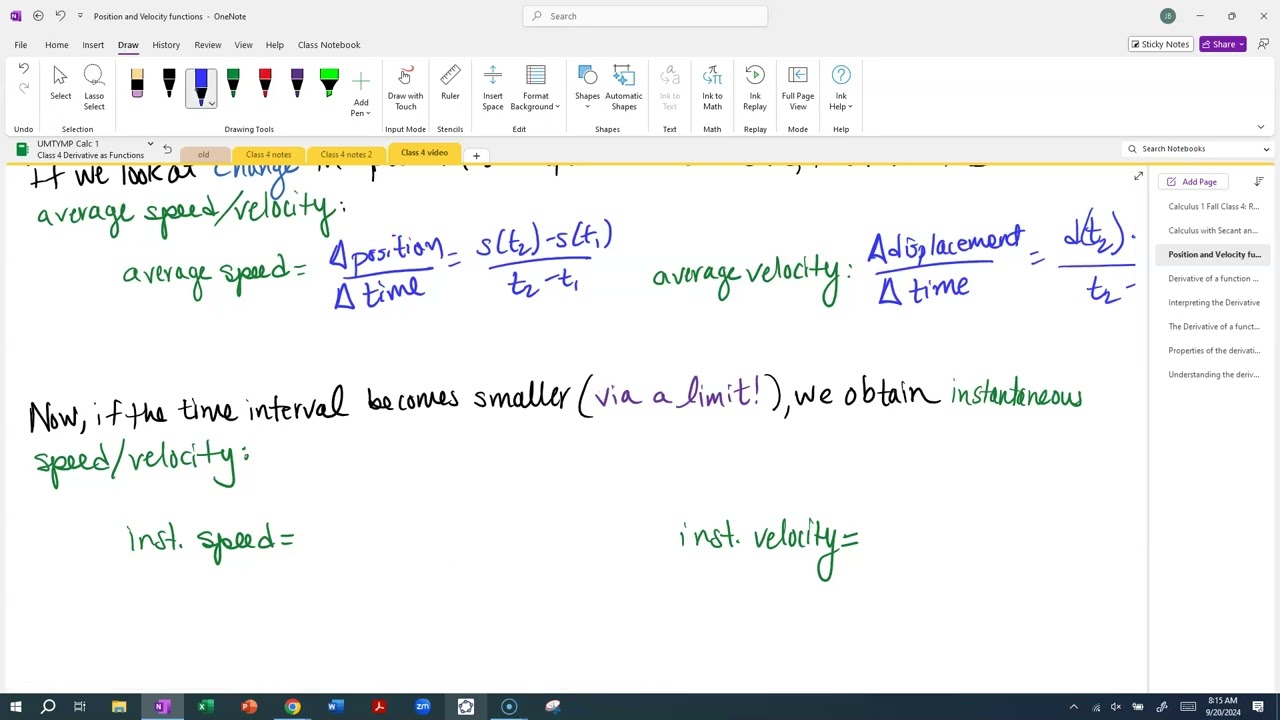 Position and Velocity functions - OneNote
Search
JB
File Home Insert Draw History Review View Help Class Notebook
Sticky Notes
Share
Select
Lasso Select
Add Pen
Draw with Touch
Ruler
Insert Space
Format Background
Shapes
Automatic Shapes
Ink to Text
Ink to Math
Ink Replay
Full Page View
Ink Help
Undo Selection Drawing Tools Input Mode Stencils Edit Shapes Text Math Replay Mode Help
UMTYMP Calc 1
Class 4 Derivative as Functions
old
Class 4 notes
Class 4 notes 2
Class 4 video
Search Notebooks
Add Page
Calculus 1 Fall Class 4: R...
Calculus with Secant an...
Position and Velocity fu...
Derivative of a function ...
Interpreting the Derivative
The Derivative of a funct...
Properties of the derivati...
Understanding the deriv...
If we look at change in
average speed/velocity:
average speed = Δposition / Δ time = s(t₂)-s(t₁) / t₂-t₁
average velocity: Δdisplacement / Δ time = d(t₂) · / t₂ -
Now, if the time interval becomes smaller (via a limit!), we obtain instantaneous
speed/velocity:
inst. speed =
inst. velocity =
8:15 AM
9/20/2024